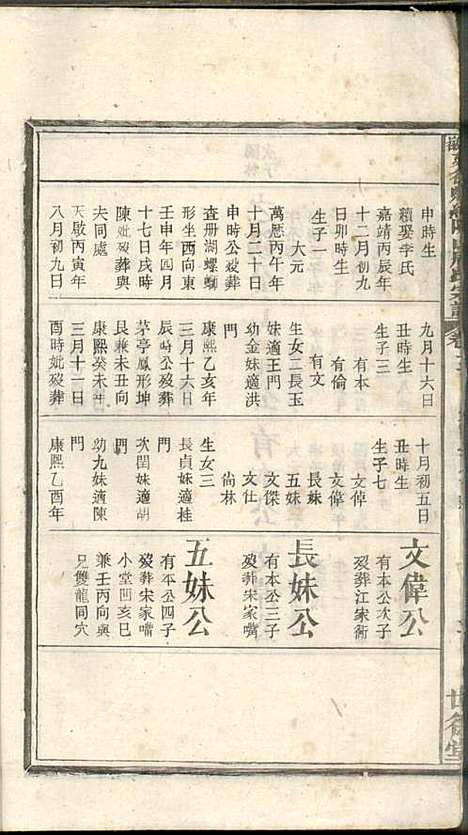 申時生
續娶李氏
嘉靖丙辰年
十二月初九
日卯時生
生子一
大元
萬歷丙午年
十月二十日
申時公歿葬
查册湖螺螄
形坐西向東
壬申年四月
十七日戌時
陳妣歿葬與
夫同處
天啟丙寅年
八月初九日
九月十六日
丑時生
生子三
有本
有倫
有文
生女三長玉
妹適王門
幼金妹適洪
門
康熙乙亥年
三月十六日
辰時公歿葬
茅亭鳳形坤
艮兼未丑向
康熙癸未年
三月十一日
酉時妣歿葬
十月初五日
丑時生
生子七
文倬
文偉
長妹
五妹
文傑
文仕
尚林
生女三
長貞妹適桂
門
次閏妹適胡
門
幼九妹適陳
門
康熙乙酉年
文偉公
有本公次子
歿葬江家衕
長妹公
有本公三子
歿葬宋家嘴
五妹公
有本公四子
歿葬宋家嘴
小堂凹亥巳
兼壬丙向與
兄雙龍同穴